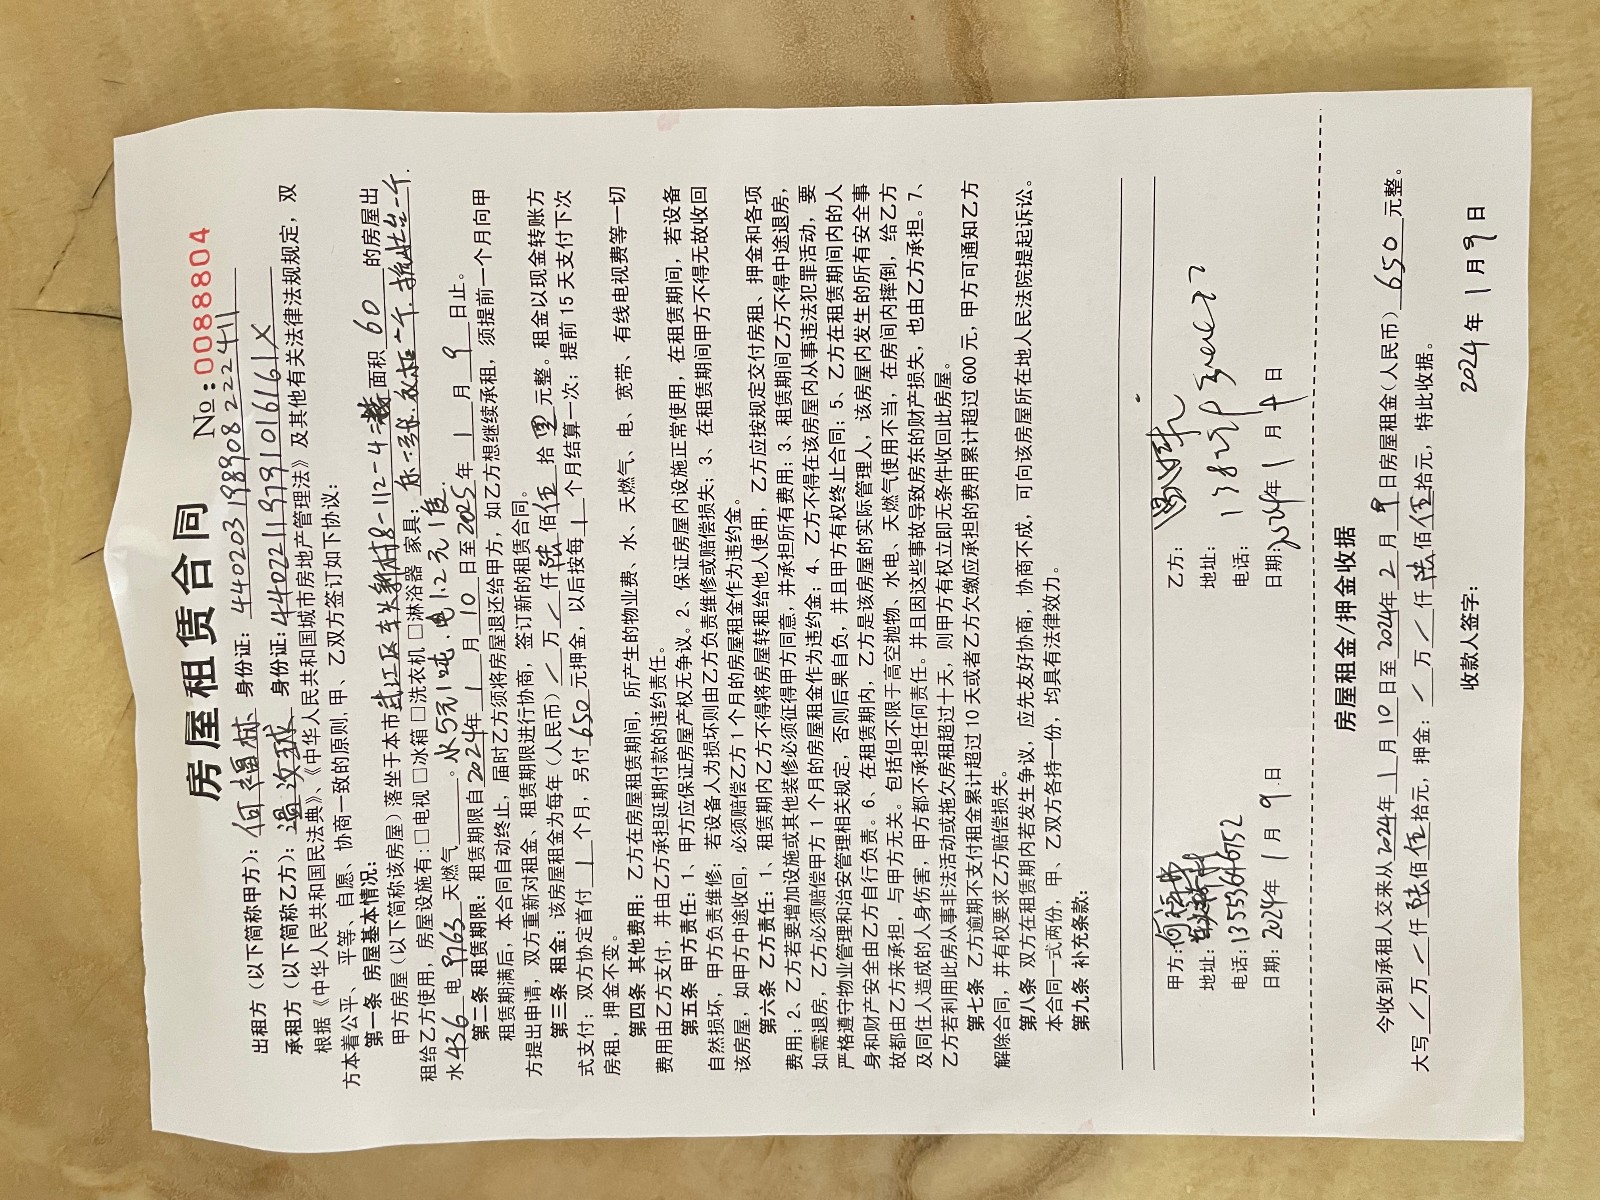 房屋租赁合同
No:0088804
出租方（以下简称甲方）： 何 身份证：440203198908222411
承租方（以下简称乙方）： 温 身份证：44022119791016161X
根据《中华人民共和国民法典》、《中华人民共和国城市房地产管理法》及其他有关法律法规规定，双
方本着公平、平等、自愿、协商一致的原则，甲、乙双方签订如下协议：
第一条 房屋基本情况：
甲方房屋（以下简称该房屋）落坐于本市武江区 新村8-112-4 面积 60 的房屋出
租给乙方使用，房屋设施有：□电视 □冰箱 □洗衣机 □淋浴器 家具：
水 436 电 8763 天燃气 。水5元1吨．电1.2元1度．
第二条 租赁期限：租赁期限自2024年 1 月 10 日至2025年 1 月 9 日止。
租赁期满后，本合同自动终止，届时乙方须将房屋退还给甲方，如乙方想继续承租，须提前一个月向甲
方提出申请，双方重新对租金、租赁期限进行协商，签订新的租赁合同。
第三条 租金：该房屋租金为每年（人民币） / 万 / 仟 陆 佰 伍 拾 元整。租金以现金转账方
式支付；双方协定首付 1 个月，另付 650 元押金，以后按每 1 个月结算一次；提前 15 天支付下次
房租，押金不变。
第四条 其他费用：乙方在房屋租赁期间，所产生的物业费、水、天燃气、电、宽带、有线电视费等一切
费用由乙方支付，并由乙方承担延期付款的违约责任。
第五条 甲方责任：1、甲方应保证房屋产权无争议。2、保证房屋内设施正常使用，在租赁期间，若设备
自然损坏，甲方负责维修；若设备人为损坏则由乙方负责维修或赔偿损失；3、在租赁期间甲方不得无故收回
该房屋，如甲方中途收回，必须赔偿乙方 1 个月的房屋租金作为违约金。
第六条 乙方责任：1、租赁期内乙方不得将房屋转租给他人使用，乙方应按规定交付房租、押金和各项
费用；2、乙方若要增加设施或其他装修必须征得甲方同意，并承担所有费用；3、租赁期间乙方不得中途退房，
如需退房，乙方必须赔偿甲方 1 个月的房屋租金作为违约金；4、乙方不得在该房屋内从事违法犯罪活动，要
严格遵守物业管理和治安管理相关规定，否则后果自负，并且甲方有权终止合同；5、乙方在租赁期间内的人
身和财产安全由乙方自行负责。6、在租赁期内，乙方是该房屋的实际管理人，该房屋内发生的所有安全事
故都由乙方来承担，与甲方无关。包括但不限于高空抛物、水电、天燃气使用不当，在房间内摔倒，给乙方
及同住人造成的人身伤害，甲方都不承担任何责任。并且因这些事故导致房东的财产损失，也由乙方承担。7、
乙方若利用此房从事非法活动或拖欠房租超过十天，则甲方有权立即无条件收回此房屋。
第七条 乙方逾期不支付租金累计超过 10 天或者乙方欠缴应承担的费用累计超过 600 元，甲方可通知乙方
解除合同，并有权要求乙方赔偿损失。
第八条 双方在租赁期内若发生争议，应先友好协商，协商不成，可向该房屋所在地人民法院提起诉讼。
本合同一式两份，甲、乙双方各持一份，均具有法律效力。
第九条 补充条款：
甲方： 乙方：
地址： 地址：
电话：13553646752 电话：
日期：2024年 1 月 9 日 日期：2024年 1 月 日
房屋租金/押金收据
今收到承租人交来从2024年 1 月 10 日至 2024年 2 月 9 日房屋租金（人民币） 650 元整。
大写 / 万 / 仟 陆 佰 伍 拾元，押金： / 万 / 仟 陆 佰 伍 拾元，特此收据。
收款人签字：
2024 年 1 月 9 日